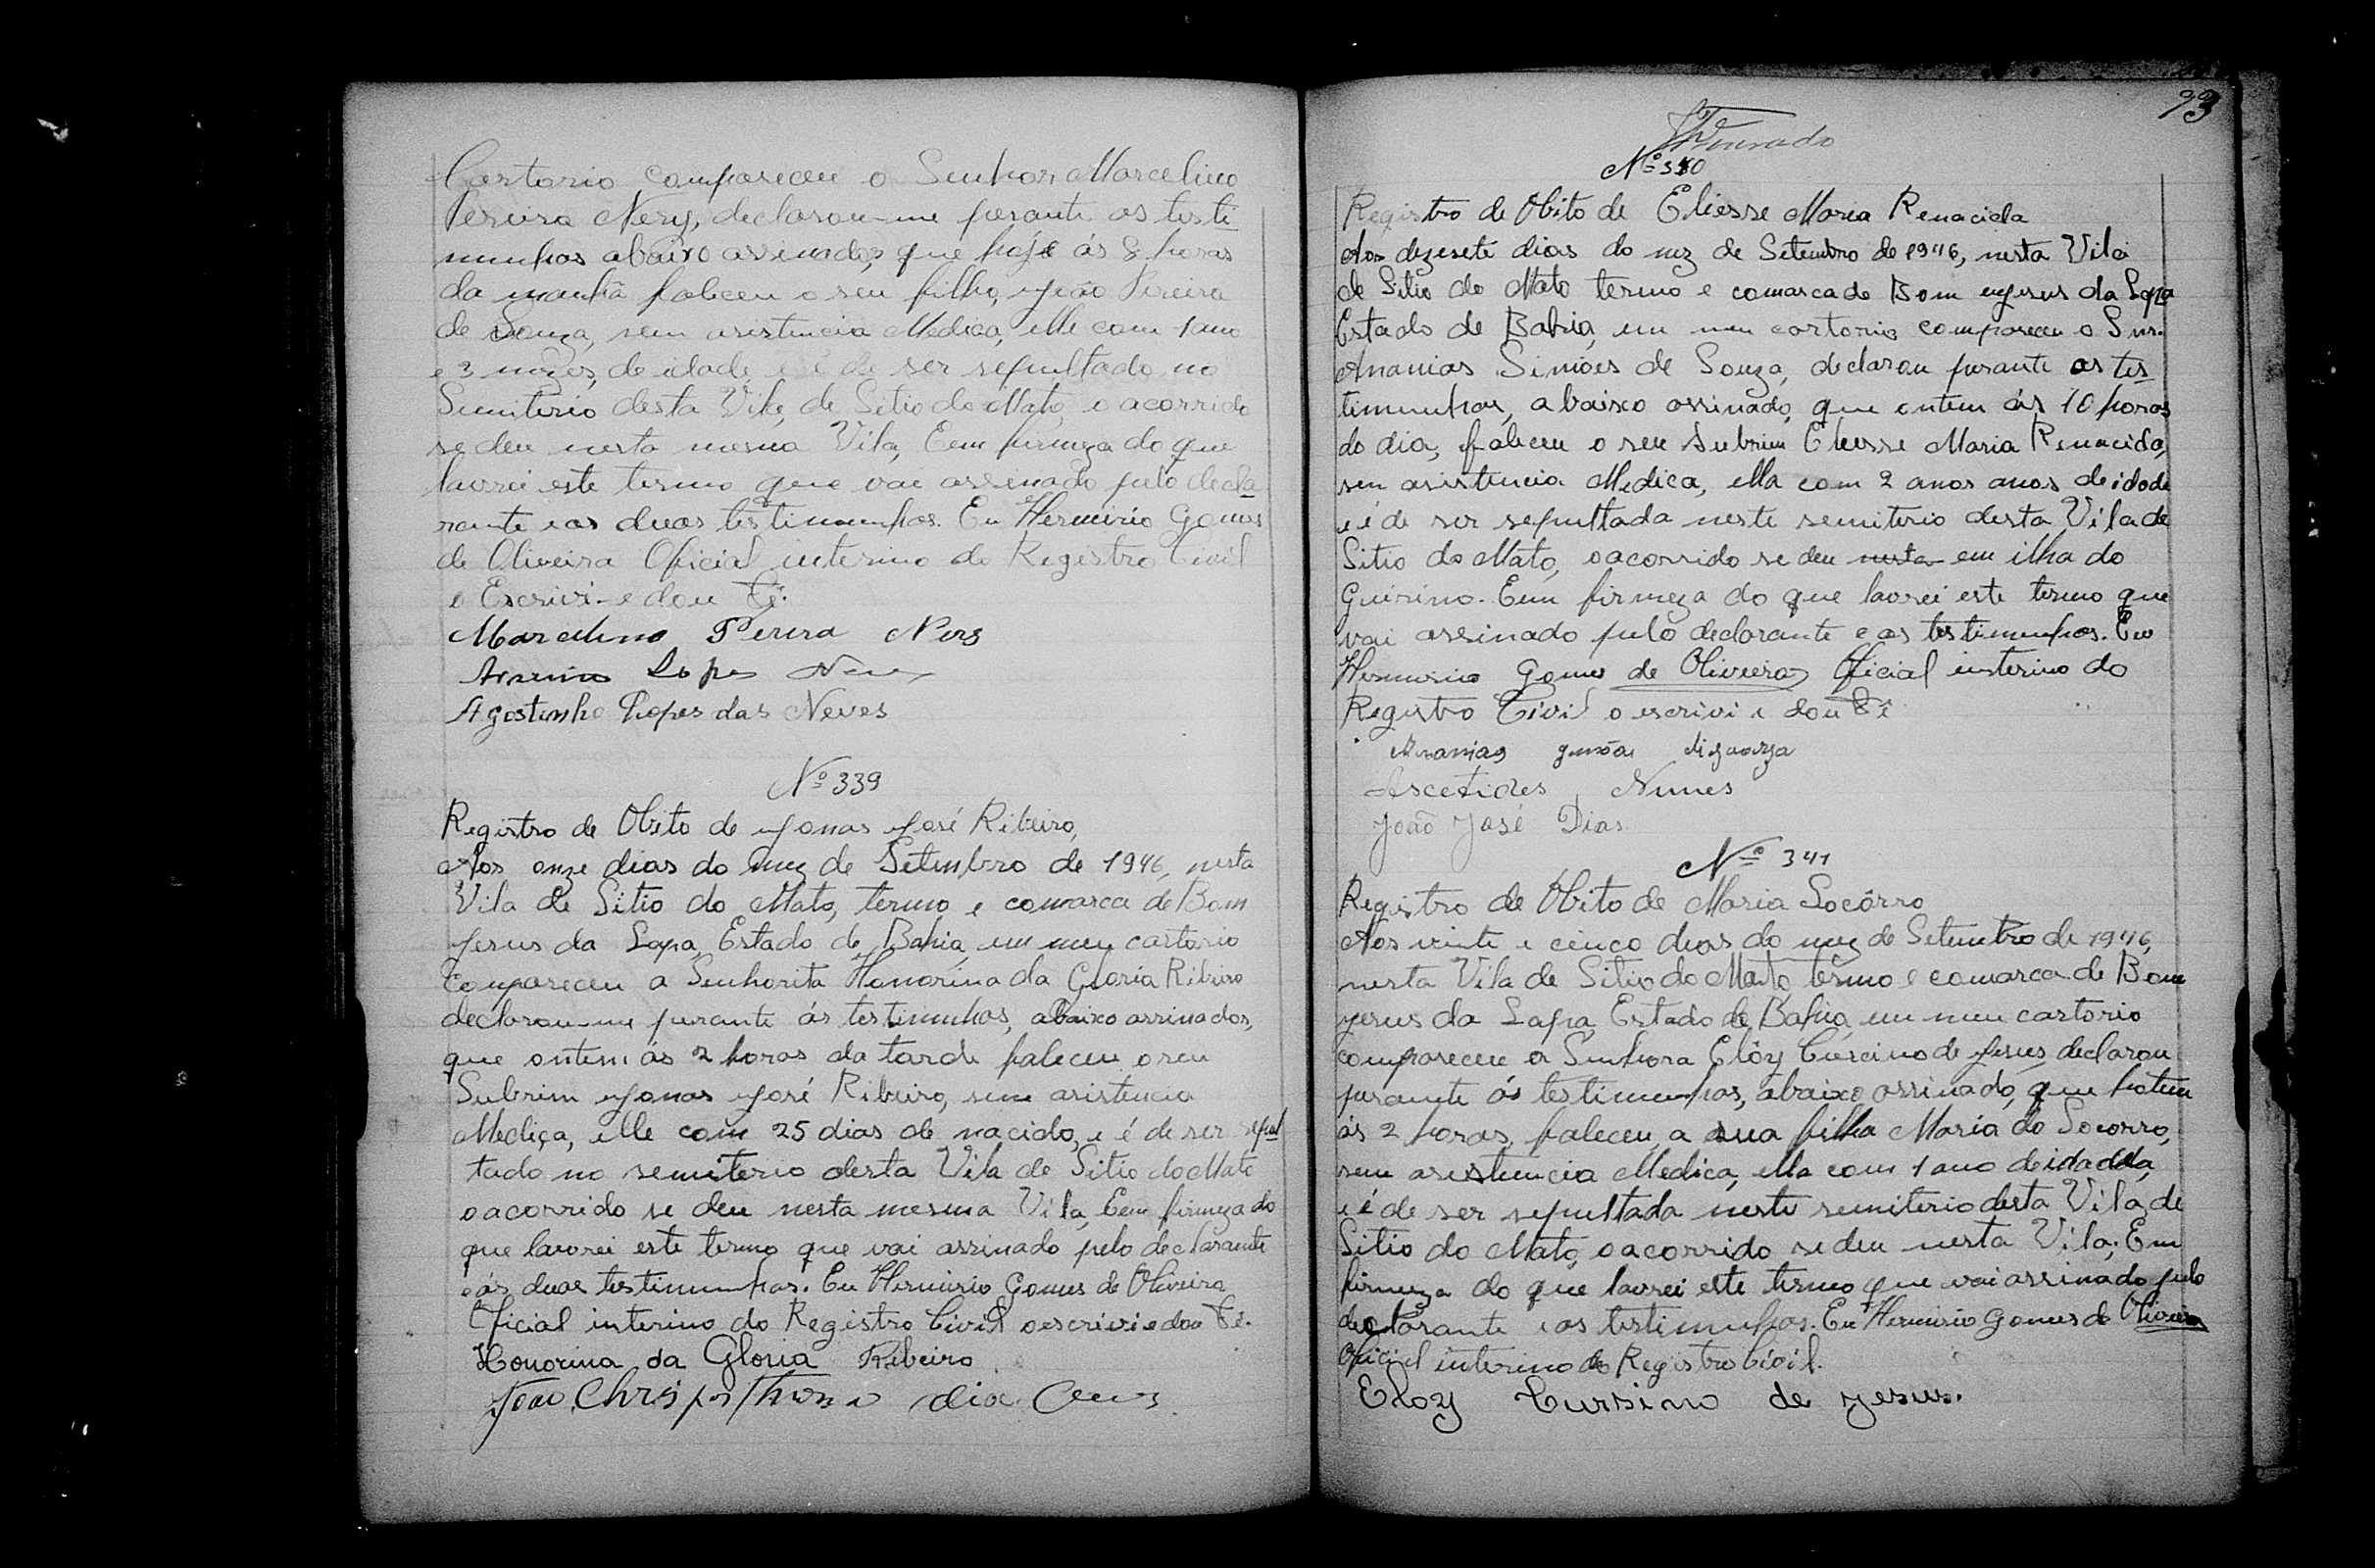 Cartorio compareceu o Senhor Marcelino
Pereira Nery, declarou-me perante as testi
munhas abaixo assinados, que hoje ás 8 horas
da manhã faleceu o seu filho, João Pereira
de Souza, sem asistencia Medica, elle com 1 ano
e 3 mezes, de idade e é de ser sepultado no
Semiterio desta Vila, de Sitio do Mato, o acorrido
se deu nesta mesma Vila, Eem firmeza do que
lavrei este termo que vai assinado pelo decla
rante e as duas testimunhas. Eu Hermirio Gomes
de Oliveira Oficial interino do Registro Civil
o Escrivi-e dou Fé.
Marcelino Perera Ners
Lopes
Agostinho Lopes das Neves
Nº 339
Registro de Obito de Jonas José Ribeiro,
Aos onze dias do mez de Setembro de 1946, nesta
Vila de Sitio do Mato, termo e comarca de Bom
Jesus da Lapa, Estado de Bahia, em meu cartorio
Compareceu a Senhorita Honorina da Gloria Ribeiro
declarou-me perante ás testimunhas, abaixo assinados,
que ontem ás 2 horas da tarde faleceu o seu
Subrim Jonas José Ribeiro, sem asistencia
Medica, elle com 25 dias de nacido, e é de ser sepul
tado no semiterio desta Vila de Sitio do Mato
o acorrido se deu nesta mesma Vila, Eem firmeza do
que lavrei este termo que vai assinado pelo declarante
e ás duas testimunhas. Eu Hermirio Gomes de Oliveira
Oficial interino do Registro Civil o escrivi e dou Fé.
Honorina da Gloria Ribeiro
João
93
Nº 340
Registro de Obito de Eliesse Maria Renacida
Aos dezesete dias do mez de Setembro de 1946, nesta Vila
de Sitio do Mato termo e comarca de Bom Jesus da Lapa
Estado de Bahia, em meu cartorio compareceu o Snr.
Ananias Simões de Souza, declarou perante as tes
timunhas, abaixo assinado, que ontem ás 10 horas
do dia, faleceu o seu Subrim Eliesse Maria Renacida,
sem asistencia Medica, ella com 2 anos anos de idade
e é de ser sepultada neste semiterio desta Vila de
Sitio do Mato, o acorrido se deu nesta em ilha do
Guirino. Eem firmeza do que lavrei este termo que
vai assinado pelo declarante e as testimunhas. Eu
Hermirio Gomes de Oliveira Oficial interino do
Registro Civil o escrivi e dou Fé
Ananias
Nunes
João José Dias
Nº 341
Registro de Obito de Maria Socôrro
Aos vinte e cinco dias do mez de Setembro de 1946,
nesta Vila de Sitio do Mato, termo e comarca de Bom
Jesus da Lapa, Estado de Bahia, em meu cartorio
compareceu a Senhora Elôy Curcino de Jesus, declarou
perante ás testimunhas, abaixo assinado, que hotem
ás 2 horas, faleceu a sua filha Maria do Socorro,
sem asistencia Medica, ella com 1 ano de idadda,
e é de ser sepultada neste semiterio desta Vila, de
Sitio do Mato, o acorrido se deu nesta Vila; Em
firmeza do que lavrei este termo que vai assinado pelo
declarante e as testimunhas. Eu Hermirio Gomes de Oliveira
Oficial interino do Registro Civil.
Eloy Cursino de Jesus.